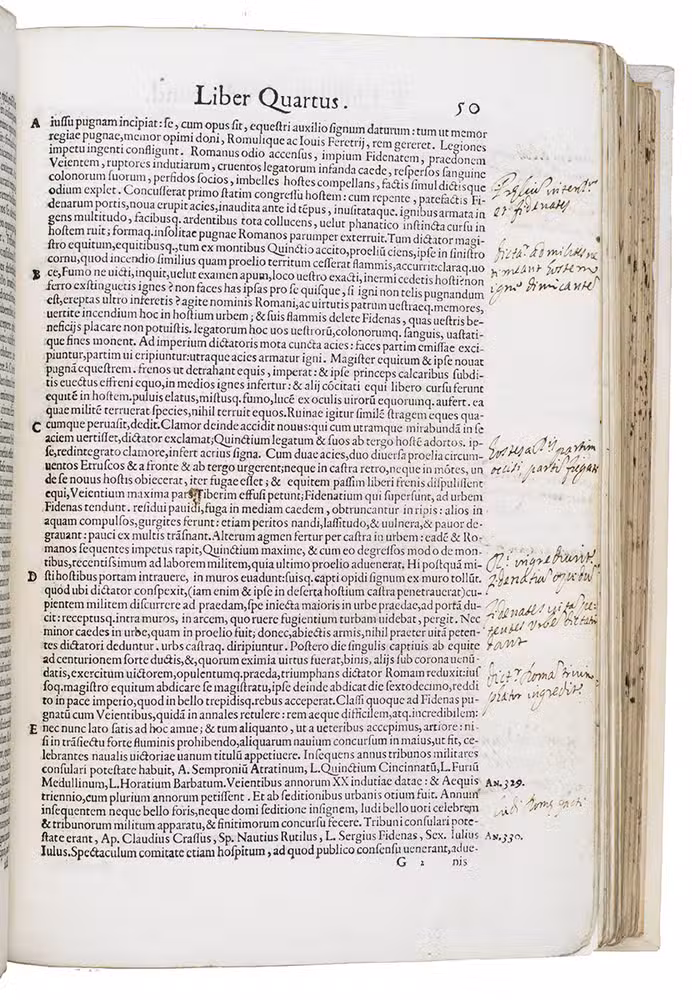 Liber Quartus. 50
A iussu pugnam incipiat: se, cum opus sit, equestri auxilio signum daturum: tum ut memor
regiae pugnae, memor opimi doni, Romulique ac Iouis Feretrij, rem gereret. Legiones
impetu ingenti confligunt. Romanus odio accensus, impium Fidenatem, praedonem
Veientem, ruptores indutiarum, cruentos legatorum infanda caede, respersos sanguine
colonorum suorum, perfidos socios, imbelles hostes compellans, factis simul dictisque
odium explet. Concusserat primo statim congressu hostem: cum repente, patefactis Fi-
denarum portis, noua erupit acies, inaudita ante id tēpus, inusitataque. ignibus armata in
gens multitudo, facibusq. ardentibus tota collucens, uelut phanatico instincta cursu in
hostem ruit; formaq. insolitae pugnae Romanos parumper exterruit. Tum dictator magi-
stro equitum, equitibusq., tum ex montibus Quinctio accito, proeliū ciens, ipse in sinistro
cornu, quod incendio similius quam proelio territum cesserat flammis, accurrit: claraq. uo
B ce, Fumo ne uicti, inquit, uelut examen apum, loco uestro exacti, inermi cedetis hosti? non
ferro exstinguetis ignes? non faces has ipsas pro se quisque, si igni non telis pugnandum
est, ereptas ultro inferetis? agite nominis Romani, ac uirtutis patrum uestraeq. memores,
uertite incendium hoc in hostium urbem; & suis flammis delete Fidenas, quas uestris be-
neficijs placare non potuistis. legatorum hoc uos uestrorū, colonorumq. sanguis, uastati-
que fines monent. Ad imperium dictatoris mota cuncta acies: faces partim emissae exci-
piuntur, partim ui eripiuntur: utraque acies armatur igni. Magister equitum & ipse nouat
pugnā equestrem. frenos ut detrahant equis, imperat: & ipse princeps calcaribus subdi-
tis euectus effreni equo, in medios ignes infertur: & alij cōcitati equi libero cursu ferunt
equitē in hostem. puluis elatus, mistusq. fumo, lucē ex oculis uirorū equorumq. aufert. ea
quae militē terruerat species, nihil terruit equos. Ruinae igitur similē stragem eques qua-
C cumque peruasit, dedit. Clamor deinde accidit nouus: qui cum utramque mirabundā in se
aciem uertisset, dictator exclamat; Quinctium legatum & suos ab tergo hostē adortos. ip-
se, redintegrato clamore, infert acrius signa. Cum duae acies, duo diuersa proelia circum-
uentos Etruscos & a fronte & ab tergo urgerent; neque in castra retro, neque in mōtes, un
de se nouus hostis obiecerat, iter fugae esset; & equitem passim liberi frenis dispulissent
equi, Veientium maxima pars Tiberim effusi petunt; Fidenatium qui supersunt, ad urbem
Fidenas tendunt. residui pauidi, fuga in mediam caedem, obtruncantur in ripis: alios in
aquam compulsos, gurgites ferunt: etiam peritos nandi, lassitudo, & uulnera, & pauor de-
grauant: pauci ex multis trāsnant. Alterum agmen fertur per castra in urbem: eadē & Ro-
manos sequentes impetus rapit, Quinctium maxime, & cum eo degressos modo de mon-
tibus, recentissimum ad laborem militem, quia ultimo proelio aduenerat. Hi postquā mi-
D sti hostibus portam intrauere, in muros euadunt: suisq. capti opidi signum ex muro tollūt.
quod ubi dictator conspexit, (iam enim & ipse in deserta hostium castra penetrauerat) cu-
pientem militem discurrere ad praedam, spe iniecta maioris in urbe praedae, ad portā du-
cit: receptusq. intra muros, in arcem, quo ruere fugientium turbam uidebat, pergit. Nec
minor caedes in urbe, quam in proelio fuit; donec, abiectis armis, nihil praeter uitā peten-
tes dictatori deduntur. urbs castraq. diripiuntur. Postero die singulis captiuis ab equite
ad centurionem sorte ductis, &, quorum eximia uirtus fuerat, binis, alijs sub corona uenū-
datis, exercitum uictorem, opulentumq. praeda, triumphans dictator Romam reduxit: ius
soq. magistro equitum abdicare se magistratu, ipse deinde abdicat die sextodecimo, reddi
to in pace imperio, quod in bello trepidisq. rebus acceperat. Classi quoque ad Fidenas pu-
gnatū cum Veientibus, quidā in annales retulere: rem aeque difficilem, atq. incredibilem:
E nec nunc lato satis ad hoc amne; & tum aliquanto, ut a ueteribus accepimus, artiore: ni-
si in traiectu forte fluminis prohibendo, aliquarum nauium concursum in maius, ut fit, ce-
lebrantes naualis uictoriae uanum titulū appetiuere. Insequens annus tribunos militares
consulari potestate habuit, A. Sempronium Atratinum, L. Quinctium Cincinnatū, L. Furiū
Medullinum, L. Horatium Barbatum. Veientibus annorum XX indutiae datae: & Aequis AN. 329.
triennio, cum plurium annorum petissent. Et ab seditionibus urbanis otium fuit. Annum
insequentem neque bello foris, neque domi seditione insignem, ludi bello uoti celebrem
& tribunorum militum apparatu, & finitimorum concursu fecere. Tribuni consulari pote-
state erant, Ap. Claudius Crassus, Sp. Nautius Rutilus, L. Sergius Fidenas, Sex. Iulius AN. 330.
Iulus. Spectaculum comitate etiam hospitum, ad quod publico consensu uenerant, adue-
G 2 nis